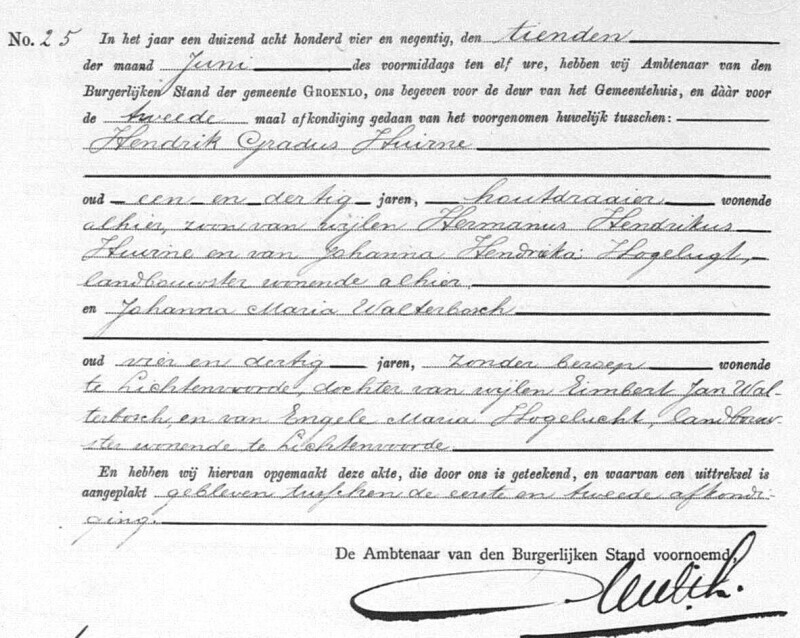 No. 25 In het jaar een duizend acht honderd vier en negentig, den tienden
der maand Juni des voormiddags ten elf ure, hebben wij Ambtenaar van den
Burgerlijken Stand der gemeente GROENLO, ons begeven voor de deur van het Gemeentehuis, en dààr voor
de tweede maal afkondiging gedaan van het voorgenomen huwelijk tusschen:
Hendrik Gradus Huirne
oud een en dertig jaren, houtdraaier wonende
alhier, zoon van wijlen Hermanus Hendrikus
Huirne en van Johanna Hendrika Hogelugt,
landbouwster wonende alhier.
en Johanna Maria Walterbosch
oud vier en dertig jaren, zonder beroep wonende
te Lichtenvoorde, dochter van wijlen Eimbert Jan Wal-
terbosch, en van Engele Maria Hogelucht, landbouw-
ster wonende te Lichtenvoorde.
En hebben wij hiervan opgemaakt deze akte, die door ons is geteekend, en waarvan een uittreksel is
aangeplakt gebleven tusschen de eerste en tweede afkondi-
ging.
De Ambtenaar van den Burgerlijken Stand voornoemd,